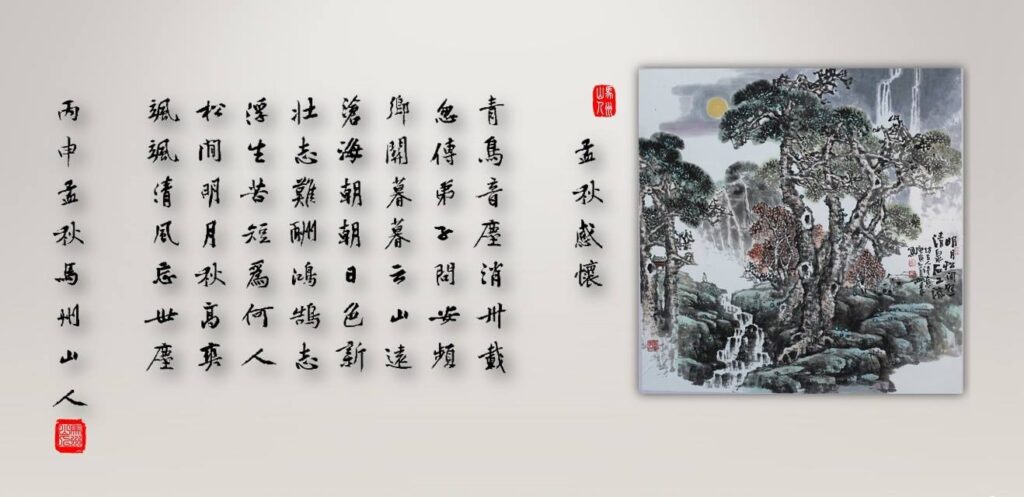 明月
清泉
馬州山人
孟秋感懷
青鳥音塵消卅載
忽傳弟子問安頻
鄉關暮暮云山遠
滄海朝朝日色新
壯志難酬鴻鵠志
浮生苦短爲何人
松間明月秋高爽
颯颯清風忘世塵
丙申孟秋馬州山人